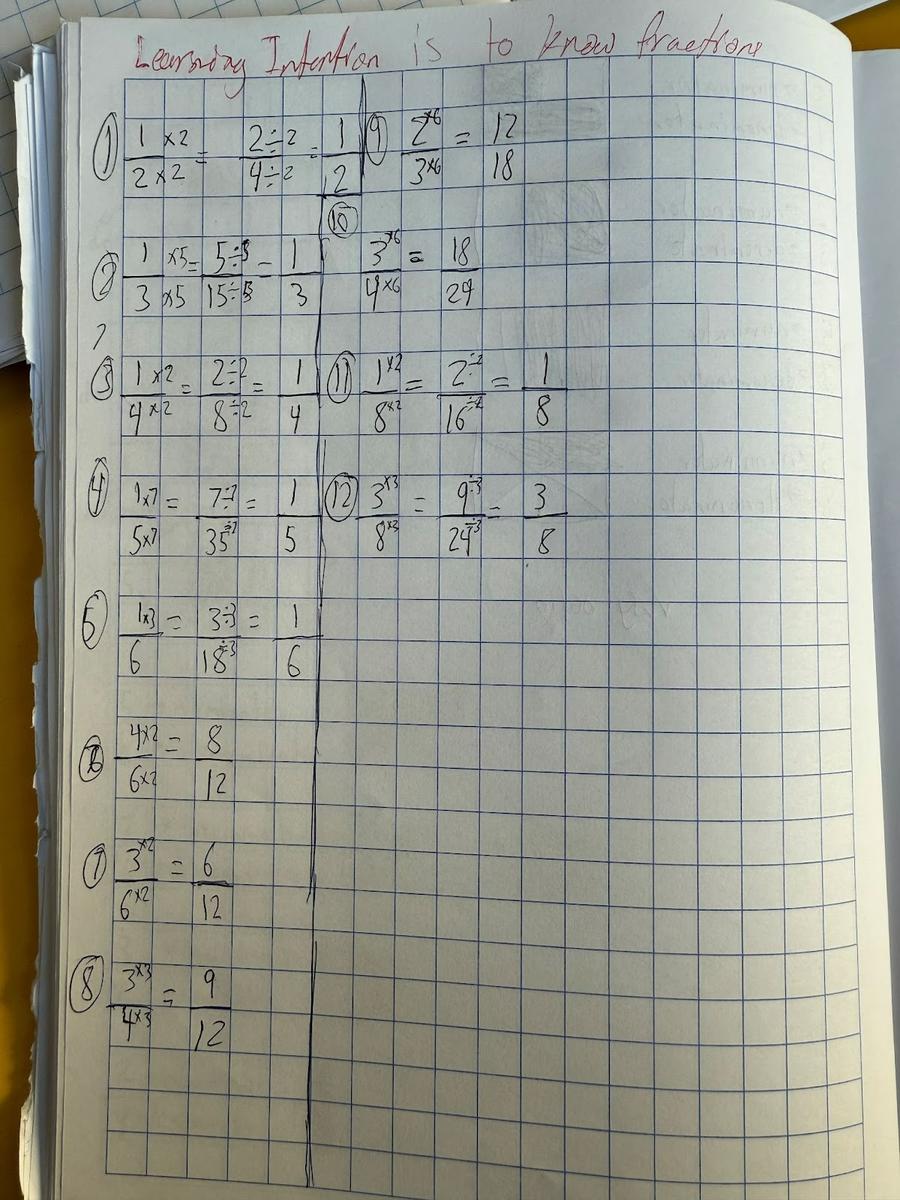 Learning Intention is to know fractions
① 1 ×2 / 2 ×2 = 2 ÷2 / 4 ÷2 = 1 / 2
② 1 ×5 / 3 ×5 = 5 ÷5 / 15 ÷5 = 1 / 3
③ 1 ×2 / 4 ×2 = 2 ÷2 / 8 ÷2 = 1 / 4
④ 1 ×7 / 5 ×7 = 7 ÷7 / 35 ÷7 = 1 / 5
⑤ 1 ×3 / 6 = 3 ÷3 / 18 ÷3 = 1 / 6
4 ×2 / 6 ×2 = 8 / 12
⑦ 3 ×2 / 6 ×2 = 6 / 12
⑧ 3 ×3 / 4 ×3 = 9 / 12
⑨ 2 ×6 / 3 ×6 = 12 / 18
⑩ 3 ×6 / 4 ×6 = 18 / 24
⑪ 1 ×2 / 8 ×2 = 2 ÷2 / 16 ÷2 = 1 / 8
⑫ 3 ×3 / 8 ×3 = 9 ÷3 / 24 ÷3 = 3 / 8